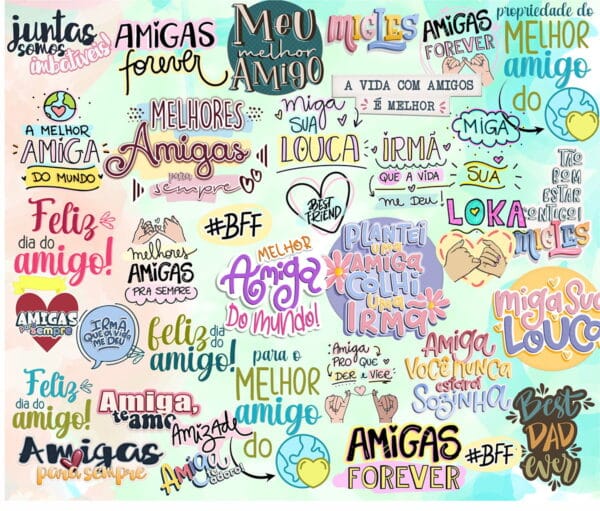 juntas
somos
imbatíveis!
AMIGAS
forever
MEU
melhor
AMIGO
MIGLES
AMIGAS
FOREVER
propriedade do
MELHOR
amigo
do
A VIDA COM AMIGOS
É MELHOR
A MELHOR
AMIGA
DO MUNDO
MELHORES
Amigas
para
sempre
miga
SUA
LOUCA
IRMÃ
QUE A VIDA
me Deu!
MIGA
SUA
LOKA
TÃO
BOM
ESTAR
CONTIGO!
MIGLES
Feliz
dia do
amigo!
melhores
AMIGAS
PRA SEMPRE
#BFF
BEST
FRIEND
MELHOR
Amiga
Do mundo!
PLANTEI
UMA
AMIGA
COLHI
UMA
IRMÃ
miga Sua
Louca
AMIGAS
para sempre
IRMÃ
QUE A VIDA
ME DEU
feliz dia do
amigo!
para o
MELHOR
amigo
do
Amiga
PRO QUE
DER e VIER
AMIGA
VOCÊ NUNCA
estará
Sozinha
Feliz
dia do
amigo!
Amiga,
te amo
AMIZADE
Amiga
te
adoro!
Amigas
para sempre
AMIGAS
FOREVER
#BFF
Best
DAD
ever